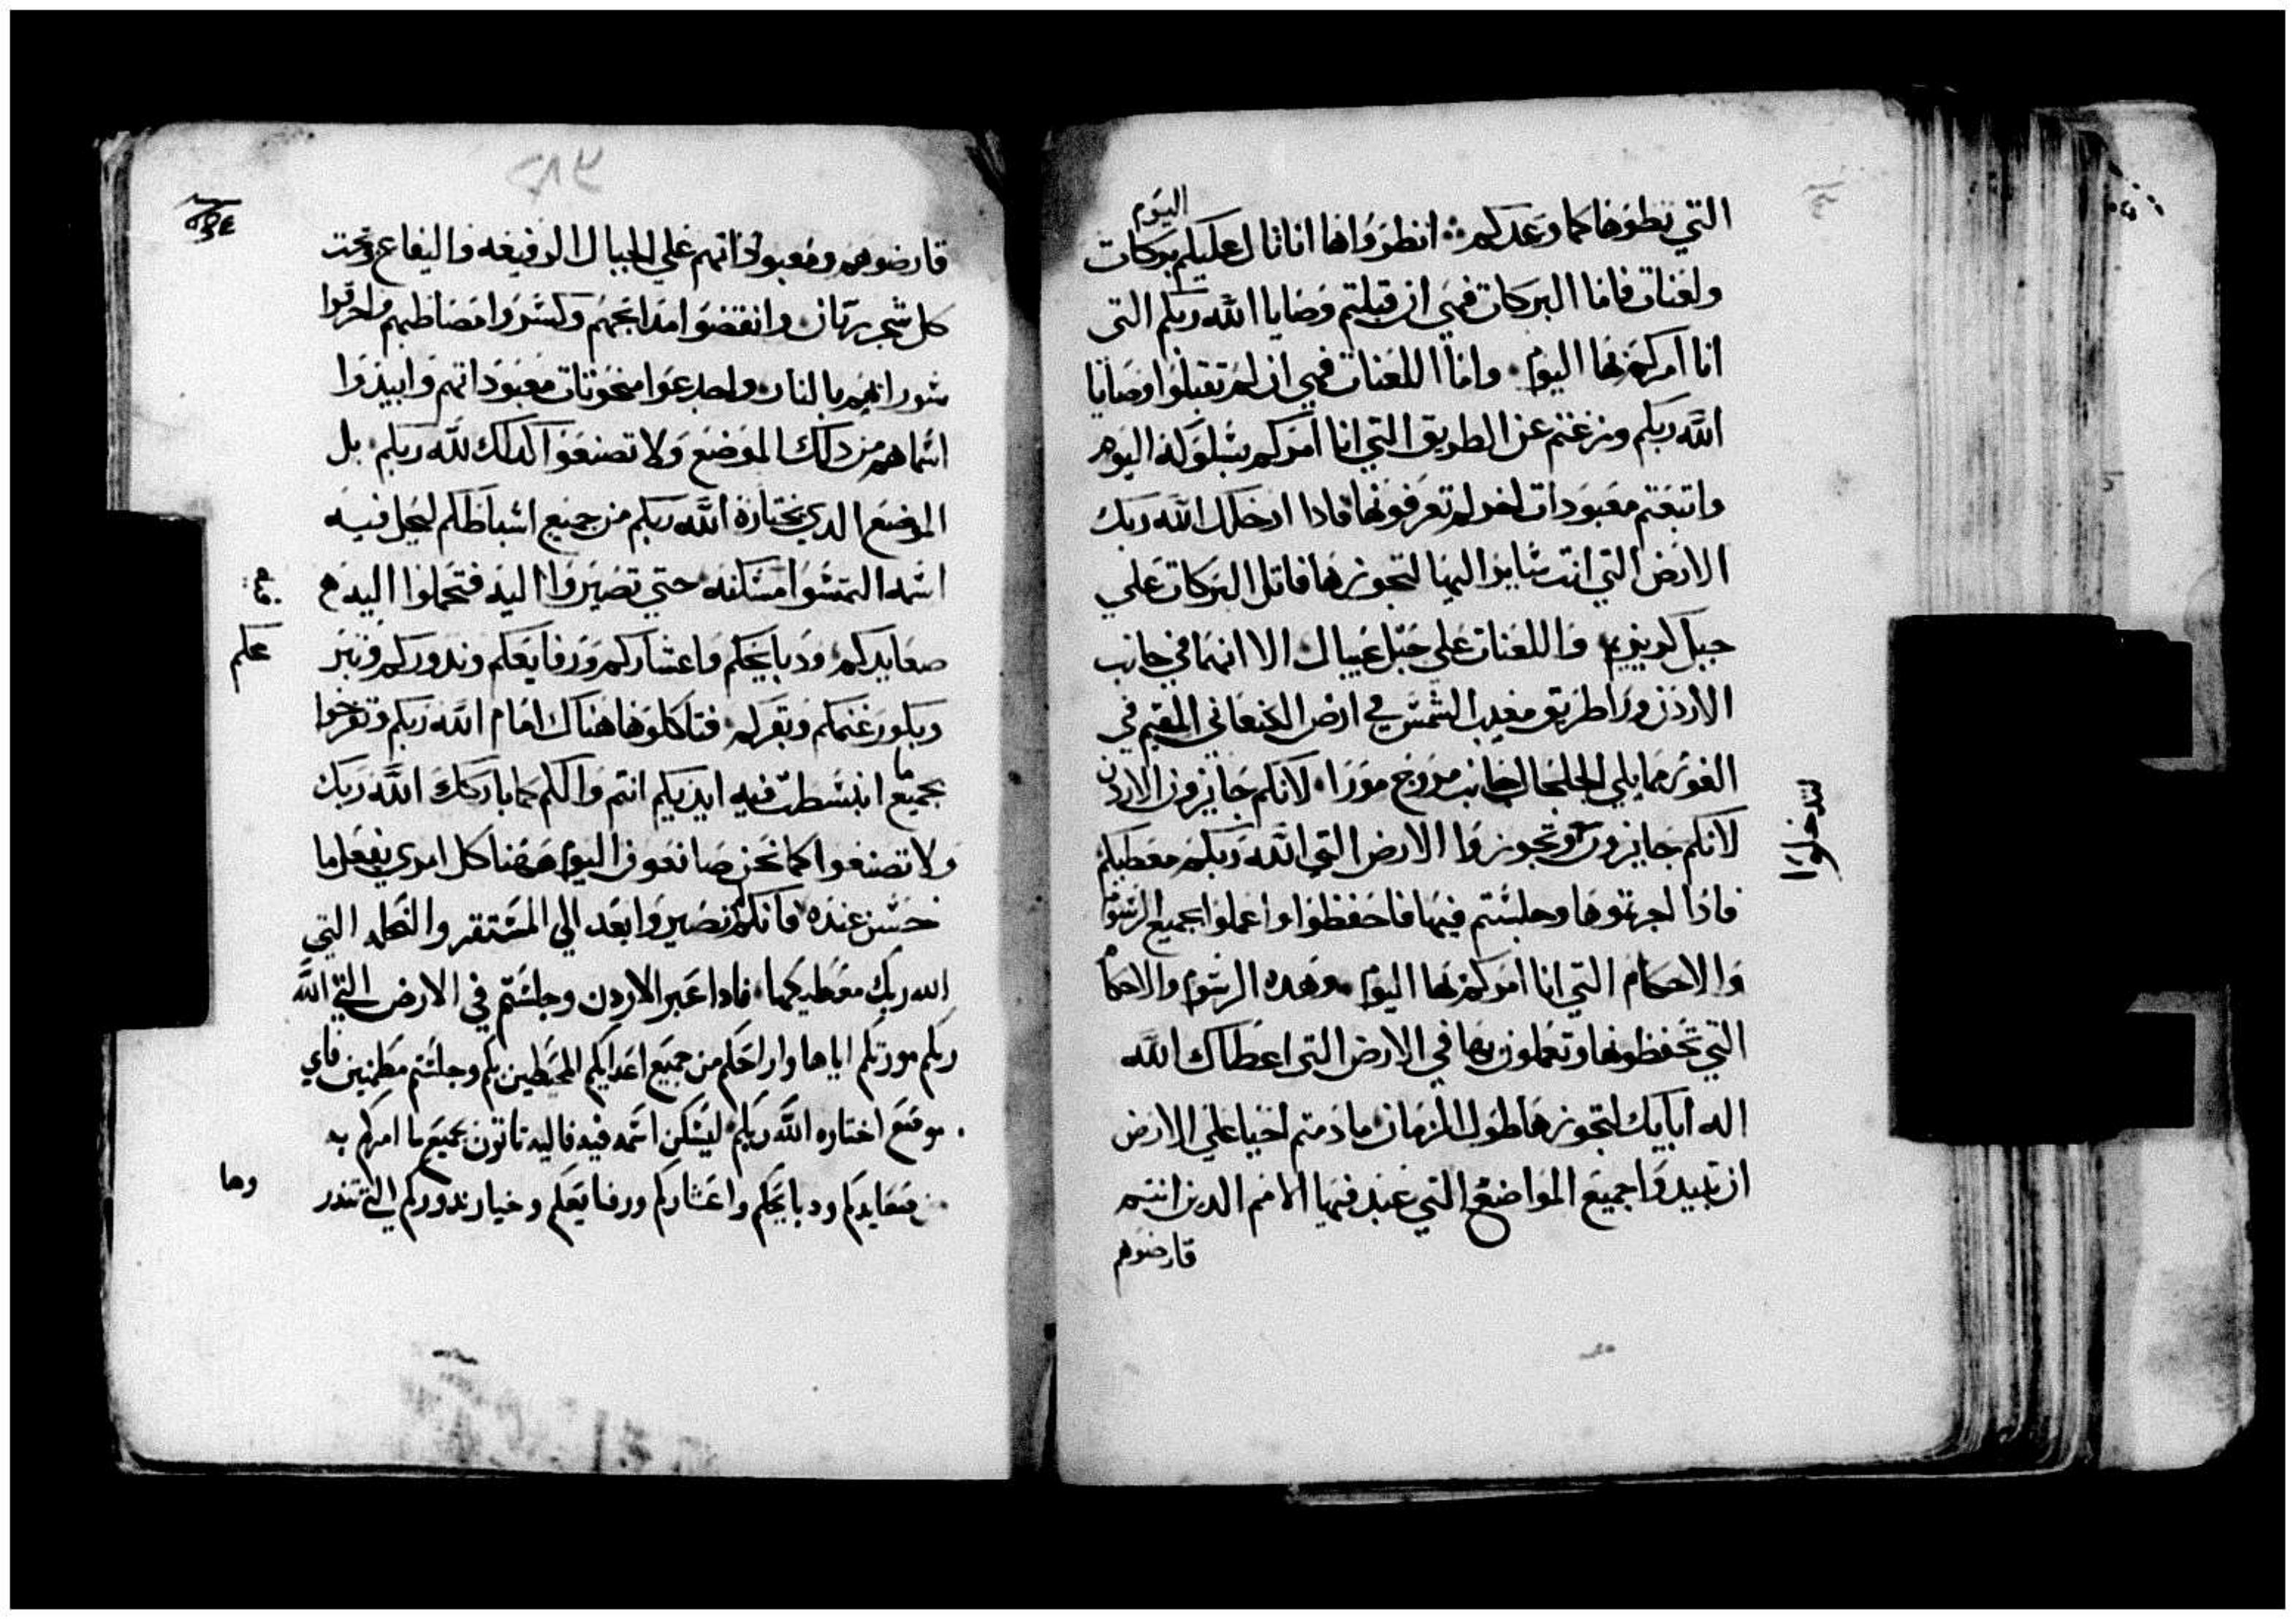 التي تطوها كما وعدكم ∴ انظروا ها انا تال عليكم اليوم بركات
ولعنات فاما البركات فهي ان قبلتم وصايا الله ربكم التي
انا امركم بها اليوم . واما اللعنات فهي ان لم تقبلوا وصايا
الله ربكم وزغتم عن الطريق التي انا امركم بسلوكه اليوم
واتبعتم معبودات اخر لم تعرفونها فادا ادخلك الله ربك
الارض التي انت سايرا اليها لتحوزها فاتل البركات علي
جبل كريزيم واللعنات علي جبل عيبال الا انهما في جانب
الاردن ورا طريق مغيب الشمس في ارض الكنعاني المقيم في
الغور مما يلي الجلجال جانب مروج مورا . لانكم جايزون الاردن
لتدخلوا
لانكم جايزون وتحوزوا الارض التي الله ربكم معطيكم
فادا اجزتوها وجلستم فيها فاحفظوا واعملوا بجميع الرسوم
والاحكام التي انا امركم بها اليوم . وهده الرسوم والاحكام
التي تحفظونها وتعملون بها في الارض التي اعطاك الله
اله ابايك لتحوزها طول الزمان مادمتم احيا علي الارض
ان تبيدوا جميع المواضع التي عبد فيها الامم الدين انتم
قارضوهم
قارضوهم ومعبوداتهم علي الجبال الرفيعه واليفاع وتحت
كل شجر ريان وانقضوا مدابحهم وكسروا مصاطبهم واحرقوا
سوراتهم بالنار واجدعوا منحوتات معبوداتهم وابيدوا
اسماهم من دلك الموضع ولا تصنعوا كدلك لله ربكم . بل
الموضع الدي يختاره الله ربكم من جميع اسباطكم ليحل فيه
اسمه التمسوا مسكنه حتي تصيروا اليه فتحملوا اليه
صعايدكم ودبايحكم واعشاركم ورفايعكم وندوركم وتبر
عكم
وبكور غنمكم وبقركم . فتاكلوها هناك امام الله ربكم وتفرحوا
بجميع ما انبسطت فيه ايديكم انتم والكم كما باركك الله ربك
ولا تصنعوا كما نحن صانعون اليوم ههنا كل امري يفعل ما
حسن عنده فانكم لم تصيروا بعد الي المستقر والنحله التي
الله ربك معطيكها . فادا عبر الاردن وجلستم في الارض التي الله
ربكم مورتكم اياها واراحكم من جميع اعدايكم المحيطين بكم وجلستم مطمنين فاي
موضع اختاره الله ربكم ليسكن اسمه فيه فاليه تاتون بجميع ما امركم به
من صعايدكم ودبايحكم واعشاركم ورفايعكم وخيار ندوركم التي تندر
وها